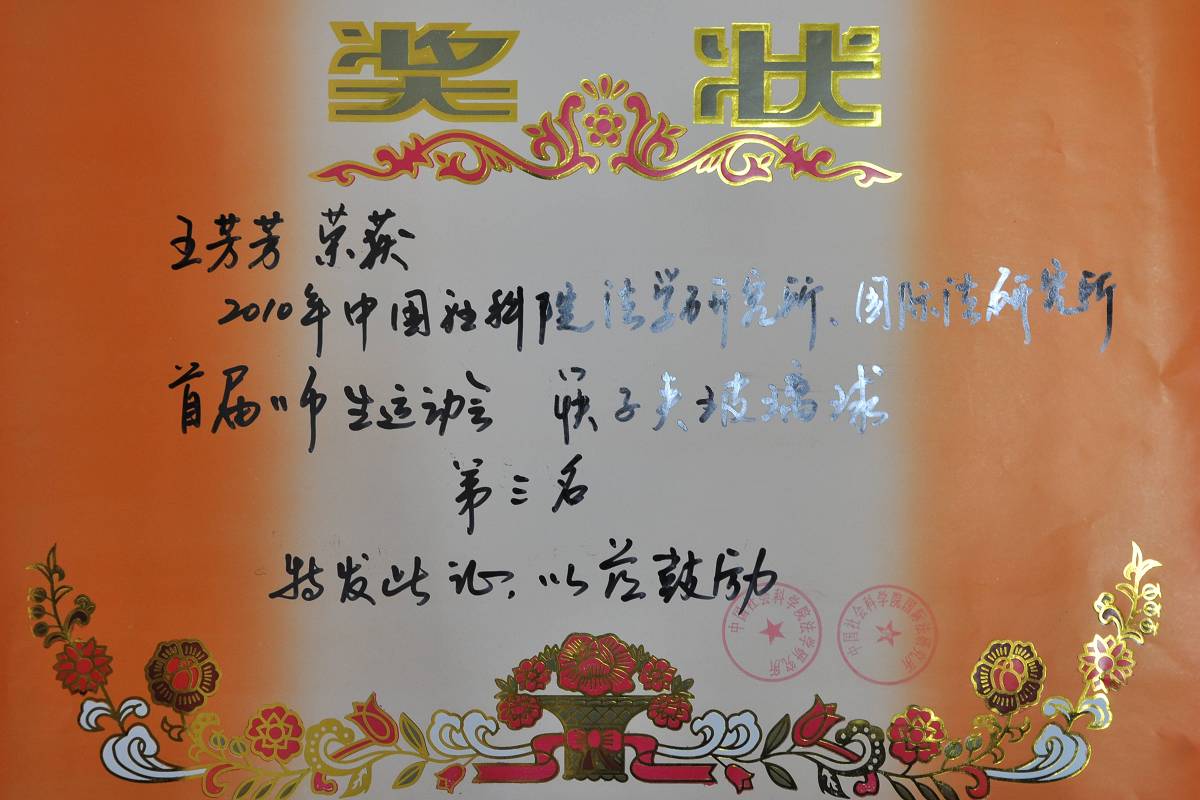 奖状
王芳芳 荣获
2010年中国社科院法学研究所、国际法研究所
首届师生运动会 筷子夹玻璃球
第三名
特发此证，以兹鼓励
中国社会科学院法学研究所
中国社会科学院国际法研究所